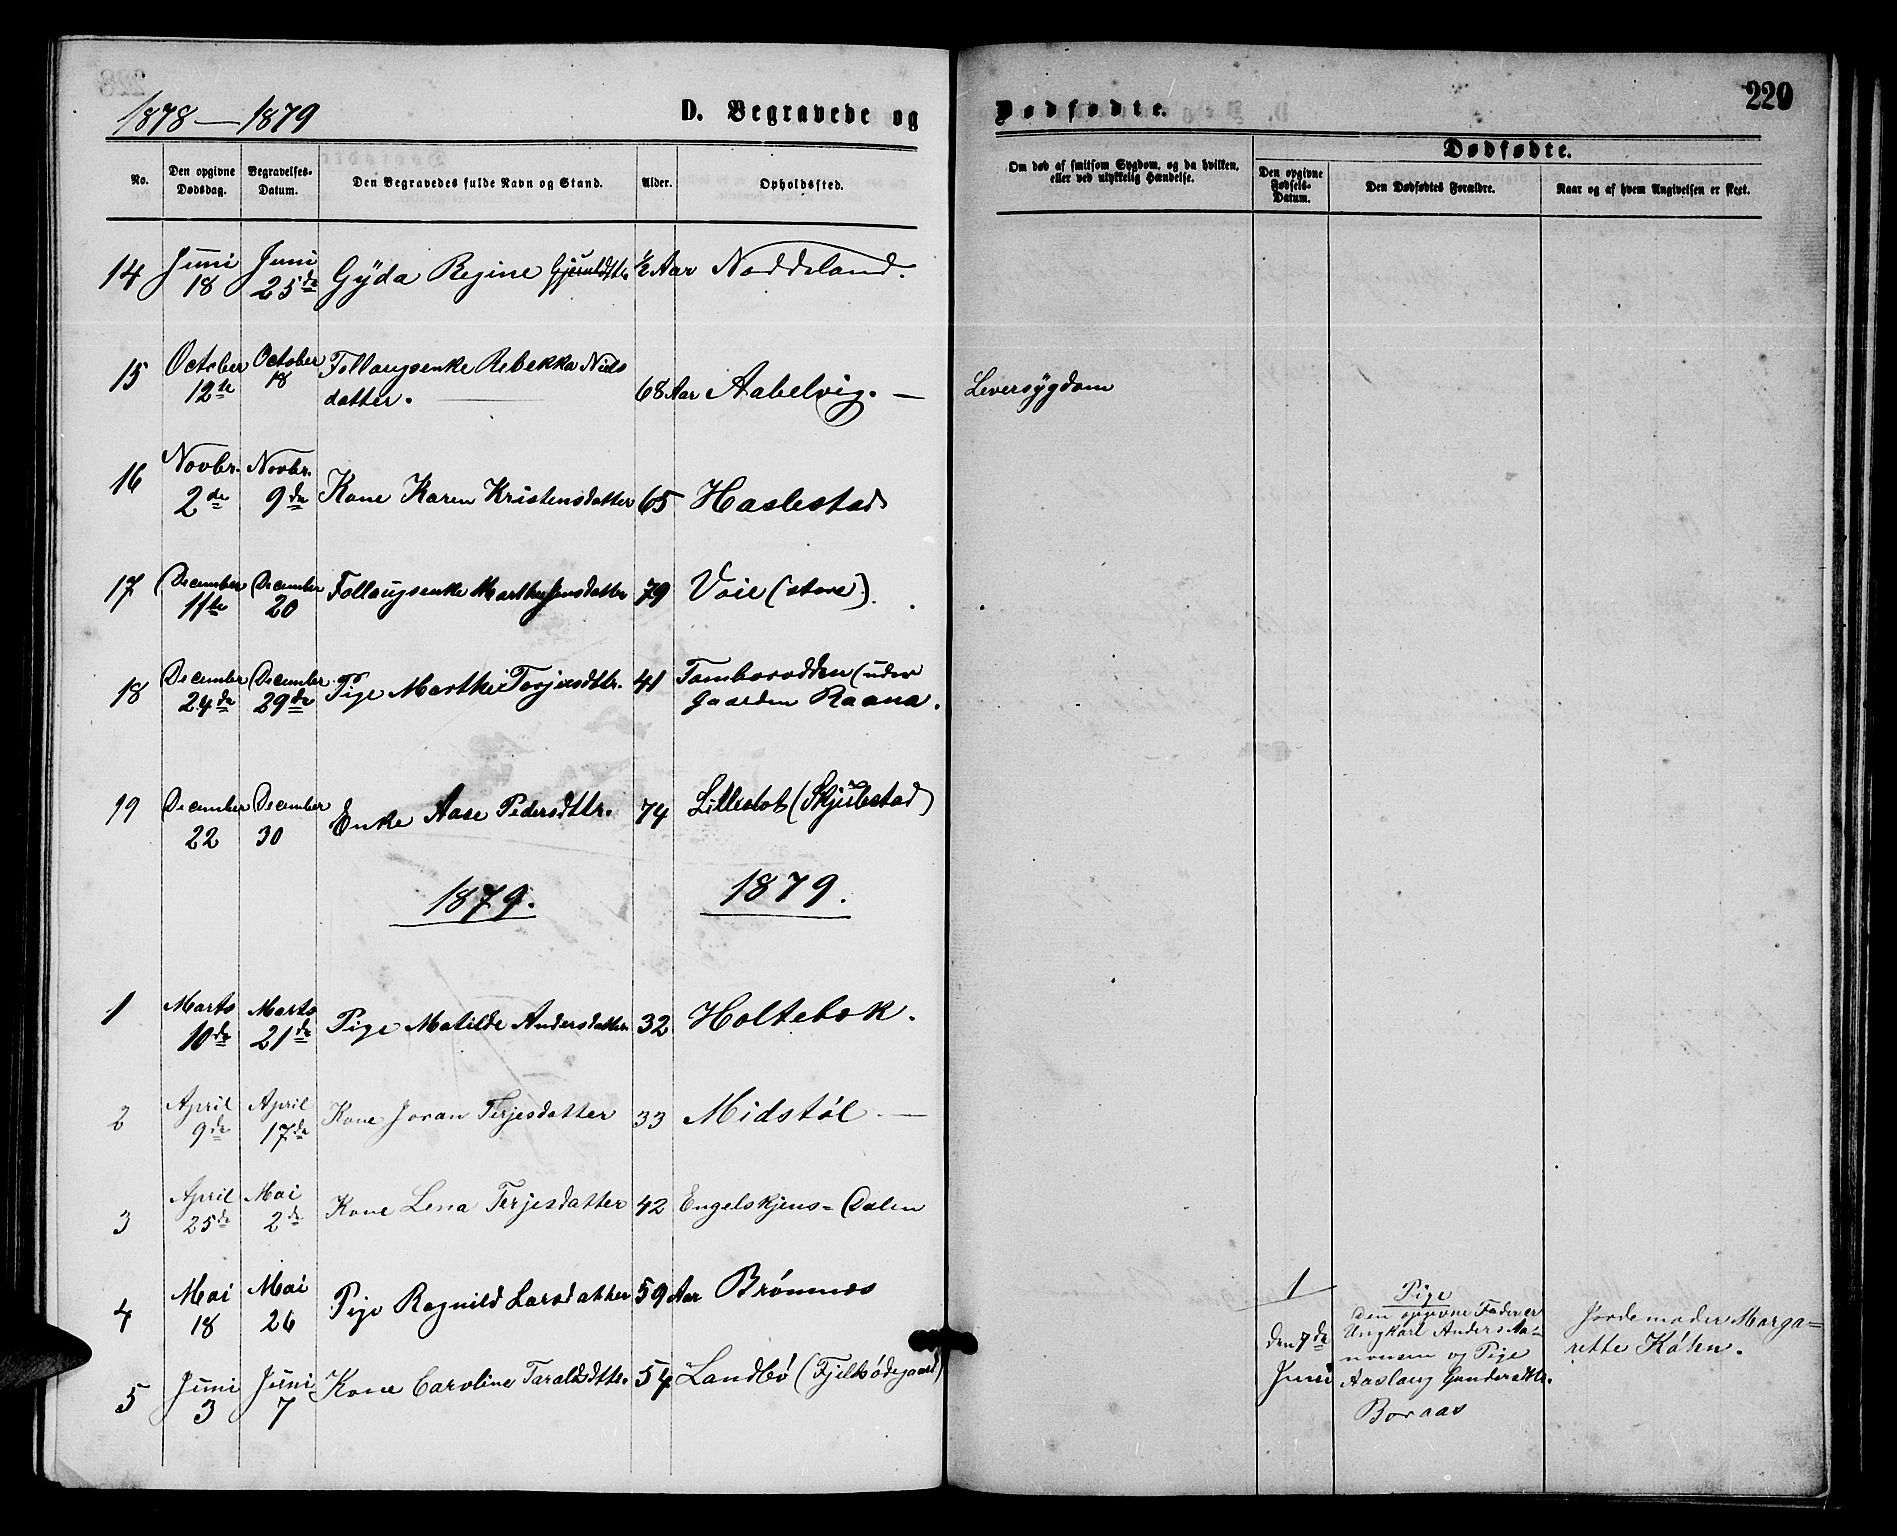 1878 — 1879
D. Begravede og
No.
Den opgivne Dødsdag.
Begravelses-Datum.
Den Begravedes fulde Navn og Stand.
Alder.
Opholdsted.
14 Juni 18 Juni 25de Gyda Regine ½ Aar Noddeland.
15 October 12te October 18 Follaugsenke Rebekka Niels
datter. 68 Aar Aabelvig. —
16 Novbr. 2de Novbr. 9de Kone Karen Kristensdatter 65 Haslestad
17 December 11te December 20 Follaugsenke Marthe Jensdatter 79 Voie (store).
18 December 24de December 29de Pige Marthe Torjesdttr. 41 Tamborodden (under
gaarden Raana.
19 December 22 December 30 Enke Aase Pedersdttr. 74 Lilleslot (Skjulestad)
1879. 1879.
1 Marts 10de Marts 21de Pige Matilde Andersdatter 32 Holtebæk.
2 April 9de April 17de Kone Joran Terjesdatter 33 Midstøl —
3 April 25de Mai 2de Kone Lena Terjesdatter 42 Engelskjens= Dalen
4 Mai 18 Mai 26 Pige Ragnild Larsdatter 59 Aar Brønnæs
5 Juni 3 Juni 7 Kone Caroline Taraldsdttr. 54 Landbø (Fjelbødegaard)
Dødfødte.
229
Om død af smitsom Sygdom, og da hvilken,
eller ved ulykkelig Hændelse.
Dødfødte.
Den opgivne Fødsels-Datum.
Den Dødfødtes Forældre.
Naar og af hvem Angivelsen er skeet.
Leversygdom
1
den 7de
Juni
Pige
Den opgivne Fader er
Ungkarl Anders Aa=
nonsen og Pige
Aaslaug Gundersdttr.
Boraas
Jordemoder Marga=
rette Køhn.